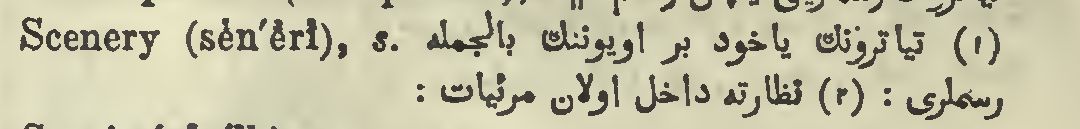 Scenery (sĕn′ĕrĭ), s. (١) تياترونك ياخود بر اويوننك بالجمله
رسملرى : (٢) نظارته داخل اولان مرئيات :